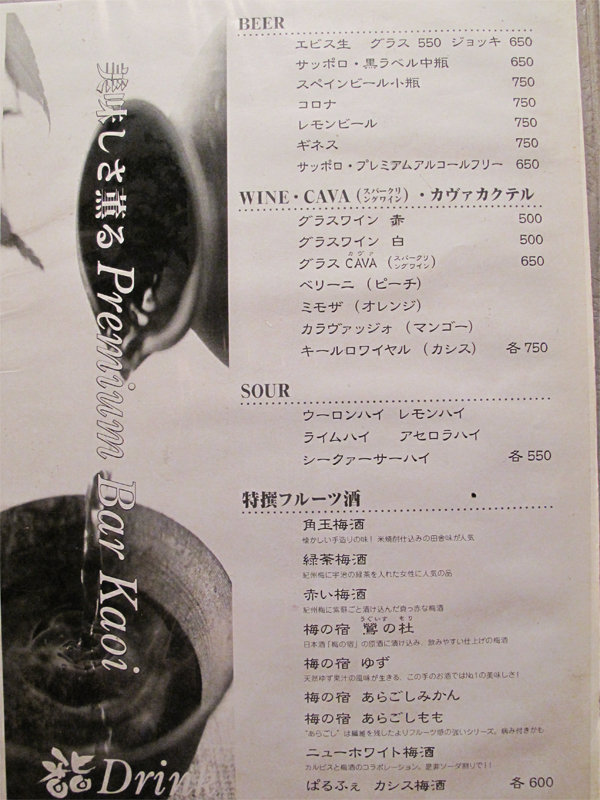 美味しさ薫る Premium Bar Kaoi
BEER
エビス生 グラス 550 ジョッキ 650
サッポロ・黒ラベル中瓶 650
スペインビール小瓶 750
コロナ 750
レモンビール 750
ギネス 750
サッポロ・プレミアムアルコールフリー 650
WINE・CAVA（スパークリングワイン）・カヴァカクテル
グラスワイン 赤 500
グラスワイン 白 500
カヴァ
グラス CAVA （スパークリングワイン） 650
ベリーニ （ピーチ）
ミモザ （オレンジ）
カラヴァッジォ （マンゴー）
キールロワイヤル （カシス） 各750
SOUR
ウーロンハイ レモンハイ
ライムハイ アセロラハイ
シークァーサーハイ 各550
特撰フルーツ酒
角玉梅酒
懐かしい手造りの味！米焼酎仕込みの田舎味が人気
緑茶梅酒
紀州梅に宇治の緑茶を入れた女性に人気の品
赤い梅酒
紀州梅に紫蘇ごと漬け込んだ真っ赤な梅酒
うぐいす もり
梅の宿 鶯の杜
日本酒「梅の宿」の原酒に漬け込み、飲みやすい仕上げの梅酒
梅の宿 ゆず
天然ゆず果汁の風味が生きる、この手のお酒では№1の美味しさ！
梅の宿 あらごしみかん
梅の宿 あらごしもも
"あらごし"は繊維を残したよりフルーツ感の強いシリーズ。病み付きかも
ニューホワイト梅酒
カルピスと梅酒のコラボレーション。是非ソーダ割りで！！
ぱるふぇ カシス梅酒 各600
Drink